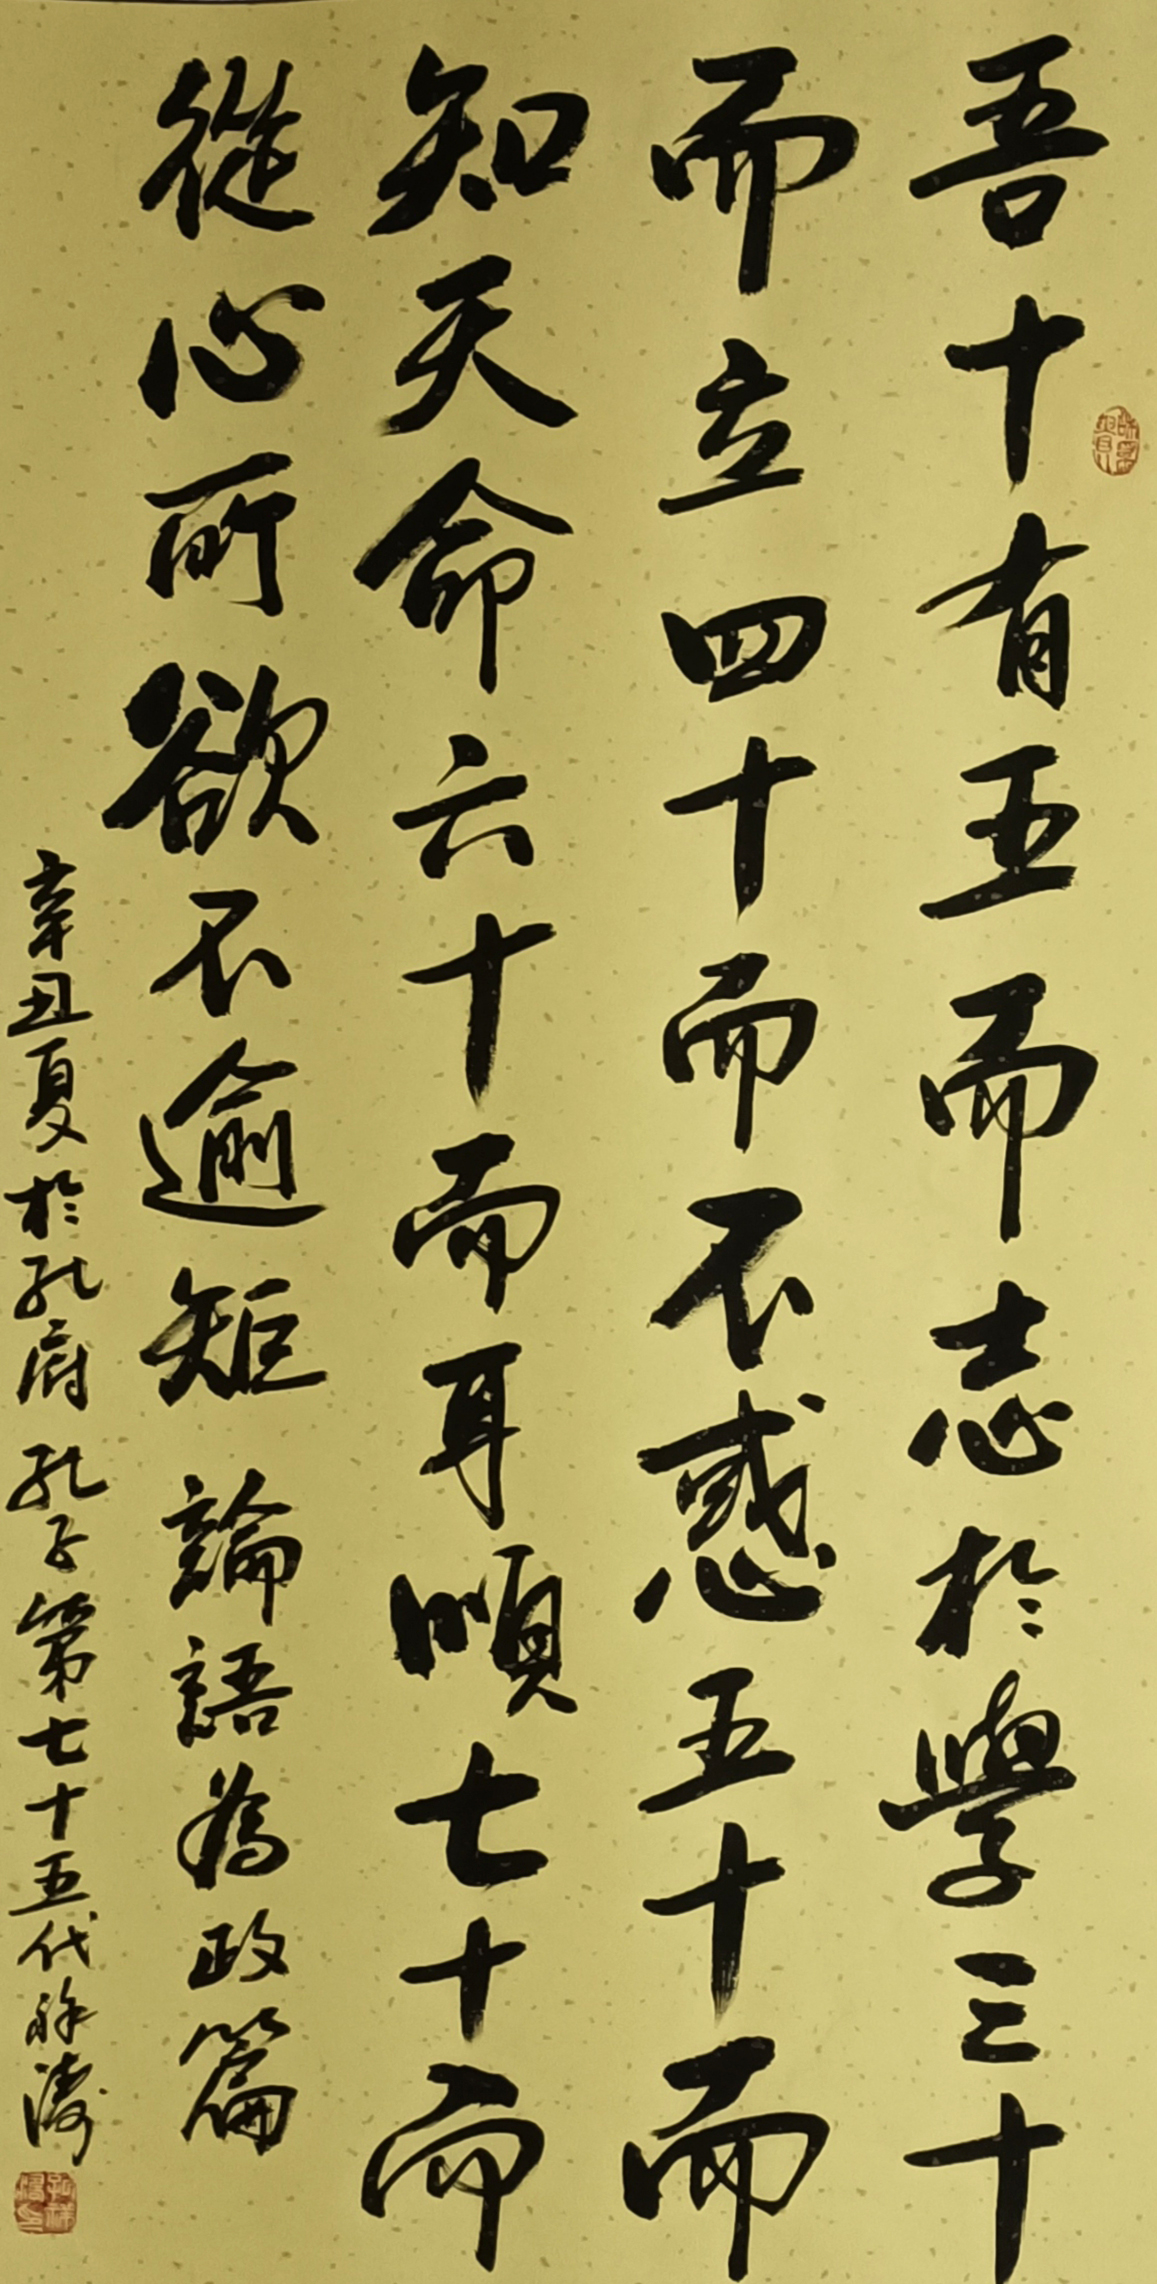 吾十有五而志於學三十
而立四十而不惑五十而
知天命六十而耳順七十而
從心所欲不逾矩 論語為政篇
辛丑夏於孔府 孔子第七十五代祥濤